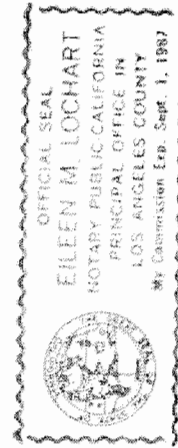 OFFICIAL SEAL
EILEEN M. LOCHART
NOTARY PUBLIC CALIFORNIA
PRINCIPAL OFFICE IN
LOS ANGELES COUNTY
My Commission Exp. Sept. 1, 1987